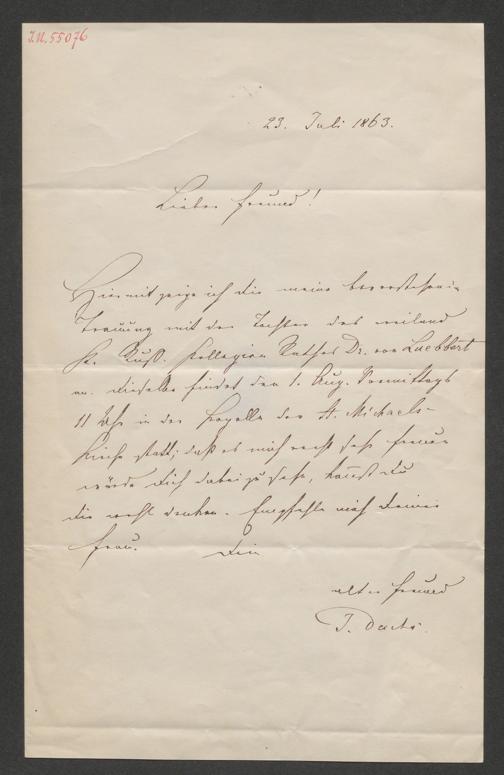 I.N. 55076
23. Juli 1863.
Lieber Freund!
Hiermit zeige ich dir meine bevorstehende
Trauung mit der Tochter des weiland
K. Russ. Kollegien Rathes Dr. von Luebbert
an. Dieselbe findet den 1. Aug. Vormittags
11 Uhr in der Kapelle der St. Michaels-
kirche statt; daß es mich recht sehr freuen
würde dich dabei zu sehen, kannst du
dir wohl denken. Empfehle mich Deiner
Frau. Dein
alter Freund
J. Dachs.